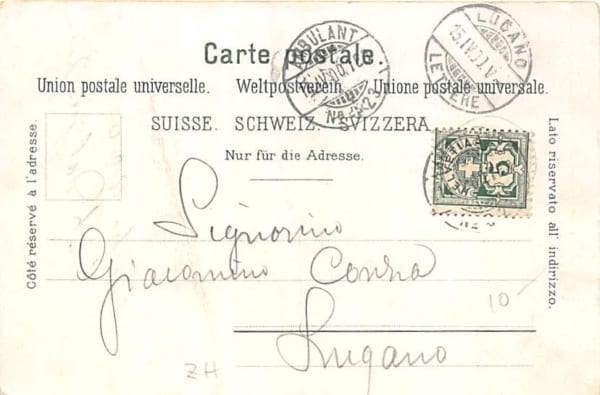 Carte postale.
Union postale universelle. Weltpostverein. Unione postale universale.
SUISSE. SCHWEIZ. SVIZZERA.
Nur für die Adresse.
Côté réservé à l'adresse.
Lato riservato all' indirizzo.
AMBULANT
No
LUGANO
15.IV.00.V
LETTERE
HELVETIA
5
Signorino
Giacomino
Lugano
10
ZH